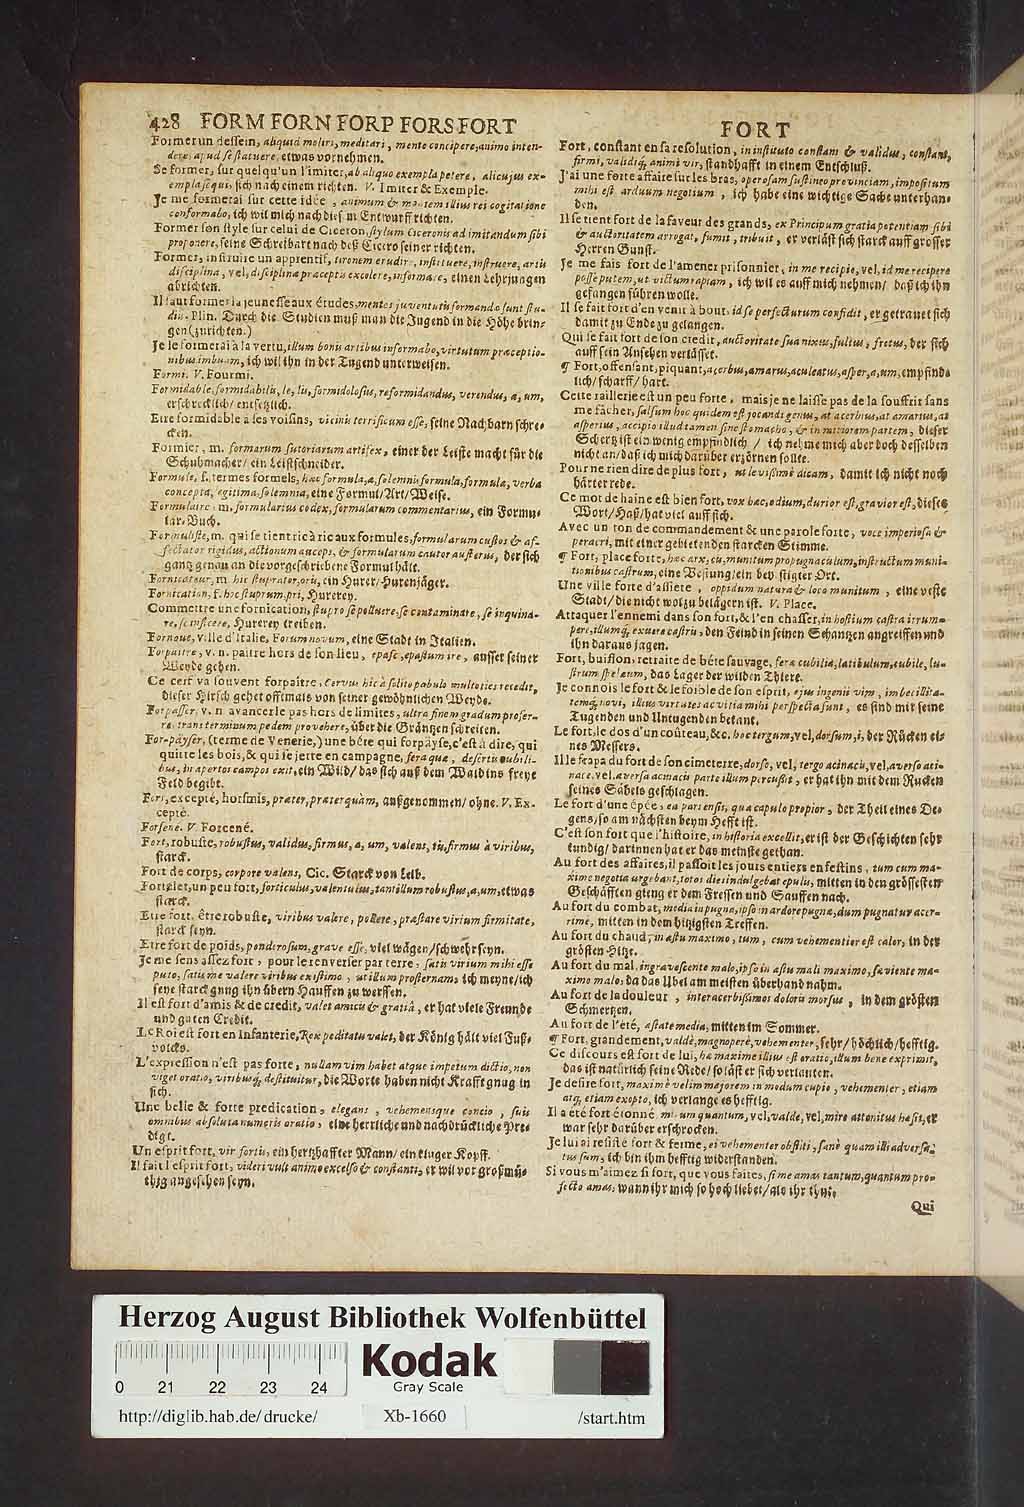 428 FORM FORN FORP FORS FORT
Former un dessein, aliquid moliri, meditari, mente concipere, animo inten-
dere, apud se statuere, etwas vornehmen.
Se former, sur quelqu'un l'imiter, ab aliquo exempla petere, alicujus ex-
empla sequi, sich nach einem richten. V. Imiter & Exemple.
Je me formerai sur cette idée, animum & mentem illius rei cogitatione
conformabo, ich wil mich nach diesem Entwurff richten.
Former son style sur celui de Ciceron, stylum Ciceronis ad imitandum sibi
proponere, seine Schreibart nach deß Cicero seiner richten.
Former, instruire un apprentif, tironem erudire, instituere, instruere, artis
disciplina, vel, disciplina praeceptis excolere, informare, einen Lehrjungen
abrichten.
Il faut former la jeunesse aux études, mentes juventutis formandae sunt stu-
diis. Plin. Durch die Studien muß man die Jugend in die Höhe brin-
gen (zurichten.)
Je le formerai à la vertu, illum bonis artibus informabo, virtutum praeceptio-
nibus imbuam, ich wil ihn in der Tugend unterweisen.
Formi. V. Fourmi.
Formidable, formidabilis, le, lis, formidolosus, reformidandus, verendus, a, um,
erschrecklich/ entsetzlich.
Etre formidable à ses voisins, vicinis terrificum esse, seine Nachbarn schre-
cken.
Formier, m. formarum sutoriarum artifex, einer der Leiste macht für die
Schuhmacher/ ein Leistschneider.
Formule, f. termes formels, haec formula, ae, solemnis formula, formula, verba
concepta, legitima, solemnia, eine Formul/ Art/ Weise.
Formulaire, m. formularius codex, formularum commentarius, ein Formu-
lar-Buch.
Formuliste, m. qui se tient ric à ric aux formules, formularum custos & as-
sectator rigidus, actionum auceps, & formularum cautor austerus, der sich
gantz genau an die vorgeschriebene Formul hält.
Fornicateur, m. hic stuprator, oris, ein Hurer/ Hurenjäger.
Fornication, f. hoc stuprum, pri, Hurerey.
Commettre une fornication, stupro se polluere, se contaminare, se inquina-
re, se inficere, Hurerey treiben.
Fornoue, ville d'Italie, Forum novum, eine Stadt in Italien.
Forpaitre, v. n. paitre hors de son lieu, epasc, epastum ire, ausser seiner
Weyde gehen.
Ce cerf va souvent forpaître, Cervus hic à solito pabulo multoties recedit,
dieser Hirsch gehet offtmals von seiner gewöhnlichen Weyde.
Forpasser, v. n. avancer le pas hors de limites, ultra finem gradum profer-
re, trans terminum pedem provehere, über die Gräntzen schreiten.
For-päyser, (terme de Venerie,) une bête qui forpäyse, c'est à dire, qui
quitte les bois, & qui se jette en campagne, fera quae, desertis cubili-
bus, in apertos campos exit, ein Wild/ das sich auß dem Wald ins freye
Feld begibt.
Fors, excepté, horsmis, praeter, praeterquàm, außgenommen/ ohne. V. Ex-
cepté.
Forsené. V. Forcené.
Fort, robuste, robustus, validus, firmus, a, um, valens, tis, firmus à viribus,
starck.
Fort de corps, corpore valens, Cic. Starck von Leib.
Fortelet, un peu fort, forticulus, valentulus, tantillum robustus, a, um, etwas
starck.
Etre fort, être robuste, viribus valere, pollere, praestare virium firmitate,
starck seyn.
Etre fort de poids, ponderosum, grave esse, viel wägen/ schwehr seyn.
Je me sens assez fort, pour le renverser par terre, satis virium mihi esse
puto, satis me valere viribus existimo, ut illum prosternam, ich meyne/ ich
seye starck gnug ihn übern Hauffen zu werffen.
Il est fort d'amis & de credit, valet amicis & gratiâ, er hat viele Freunde
und guten Credit.
Le Roi est fort en Infanterie, Rex peditatu valet, der König hält viel Fuß-
volcks.
L'expression n'est pas forte, nullam vim habet atque impetum dictio, non
viget oratio, viribusq; destituitur, die Worte haben nicht Krafft gnug in
sich.
Une belle & forte predication, elegans, vehemensque concio, suis
omnibus absoluta numeris oratio, eine herrliche und nachdrückliche Pre-
digt.
Un esprit fort, vir fortis, ein hertzhaffter Mann/ ein kluger Kopff.
Il fait l'esprit fort, videri vult animo excelso & constanti, er wil vor großmü-
thig angesehen seyn.
FORT
Fort, constant en sa resolution, in instituto constans & validus, constans,
firmi, validiq; animi vir, standhafft in einem Entschluß.
J'ai une forte affaire sur les bras, operosam sustineo provinciam, impositum
mihi est arduum negotium, ich habe eine wichtige Sache unterhan-
den.
Il se tient fort de la faveur des grands, ex Principum gratia potentiam sibi
& auctoritatem arrogat, sumit, tribuit, er verläst sich starck auff grosser
Herren Gunst.
Je me fais fort de l'amener prisonnier, in me recipio, vel, id me recipere
posse putem, ut victum rapiam, ich wil es auff mich nehmen/ daß ich ihn
gefangen führen wolle.
Il se fait fort d'en venir à bout, id se perfecturum confidit, er getrauet sich
damit zu Ende zu gelangen.
Qui se fait fort de son credit, auctoritate sua nixus, fultus, fretus, der sich
auff sein Ansehen verlässet.
¶ Fort, offensant, piquant, acerbus, amarus, aculeatus, asper, a, um, empfind-
lich/ scharff/ hart.
Cette raillerie est un peu forte, mais je ne laisse pas de la souffrir sans
me fâcher, salsum hoc quidem est jocandi genus, at acerbius, at amarius, at
asperius, accipio illud tamen sine stomacho, & in mitiorem partem, dieser
Schertz ist ein wenig empfindlich/ ich nehme mich aber doch desselben
nicht an/ daß ich mich darüber erzörnen solte.
Pour ne rien dire de plus fort, ut levissimè dicam, damit ich nicht noch
härter rede.
Ce mot de haine est bien fort, vox haec, odium, durior est, gravior est, dieses
Wort/ Haß/ hat viel auff sich.
Avec un ton de commandement & une parole forte, voce imperiosa &
peracri, mit einer gebietenden starcken Stimme.
¶ Fort, place forte, haec arx, cis, munitum propugnaculum, instructum muni-
tionibus castrum, eine Vestung/ ein bevestigter Ort.
Une ville forte d'assiete, oppidum natura & loco munitum, eine veste
Stadt/ die nicht wol zu belägern ist. V. Place.
Attaquer l'ennemi dans son fort, & l'en chasser, in hostium castra irrum-
pere, illumq; exuere castris, den Feind in seinen Schantzen angreiffen und
ihn daraus jagen.
Fort, buisson, retraite de bête sauvage, ferae cubilia, latibulum, cubile, lu-
strum spelaeum, das Lager der wilden Thiere.
Je connois le fort & le foible de son esprit, ejus ingenii vim, imbecillita-
temq; novi, illius virtutes ac vitia mihi perspecta sunt, es sind mir seine
Tugenden und Untugenden bekant.
Le fort, le dos d'un coûteau, &c. hoc tergum, vel, dorsum, i, der Rücken ei-
nes Messers.
Il le frapa du fort de son cimeterre, dorso, vel, tergo acinacis, vel, averso aci-
nace, vel, aversa acinacis parte illum percussit, er hat ihn mit dem Rucken
seines Säbels geschlagen.
Le fort d'une épée, ea pars ensis, quae capulo propior, der Theil eines De-
gens/ so am nächsten beym Hefft ist.
C'est son fort que l'histoire, in historia excellit, er ist der Geschichten sehr
kundig/ darinnen hat er das meinste gethan.
Au fort des affaires, il passoit les jours entiers en festins, tum cum ma-
xime negotia urgebant, totos dies indulgebat epulis, mitten in den grössesten
Geschäfften gieng er dem Fressen und Sauffen nach.
Au fort du combat, media in pugna, ipso in ardore pugnae, dum pugnatur acer-
rime, mitten in dem hitzigsten Treffen.
Au fort du chaud, in aestu maximo, tum, cum vehementior est calor, in der
grösten Hitze.
Au fort du mal, ingravescente malo, ipso in aestu mali maximo, saeviente ma-
ximo malo, da das Ubel am meisten überhand nahm.
Au fort de la douleur, interacerbissimos doloris morsus, in dem grösten
Schmertzen.
Au fort de l'été, aestate media, mitten im Sommer.
¶ Fort, grandement, valdè, magnoperè, vehementer, sehr/ höchlich/ hefftig.
Ce discours est fort de lui, haec maxime illius est oratio, illum bene exprimit,
das ist natürlich seine Rede/ so läst er sich verlauten.
Je desire fort, maximè velim majorem in modum cupio, vehementer, etiam
atq; etiam expeto, ich verlange es hefftig.
Il a été fort étonné mirum quantum, vel, valde, vel, mire attonitus haesit, er
war sehr darüber erschrocken.
Je lui ai resisté fort & ferme, ei vehementer obstiti, sanè quam illi adversa-
tus sum, ich bin ihm hefftig widerstanden.
Si vous m'aimez si fort, que vous faites, si me amas tantum, quantum pro-
fecto amas, wann ihr mich so hoch liebet/ als ihr thut.
Qui
Herzog August Bibliothek Wolfenbüttel
0 21 22 23 24
Kodak
Gray Scale
http://diglib.hab.de/drucke/ Xb-1660 /start.htm